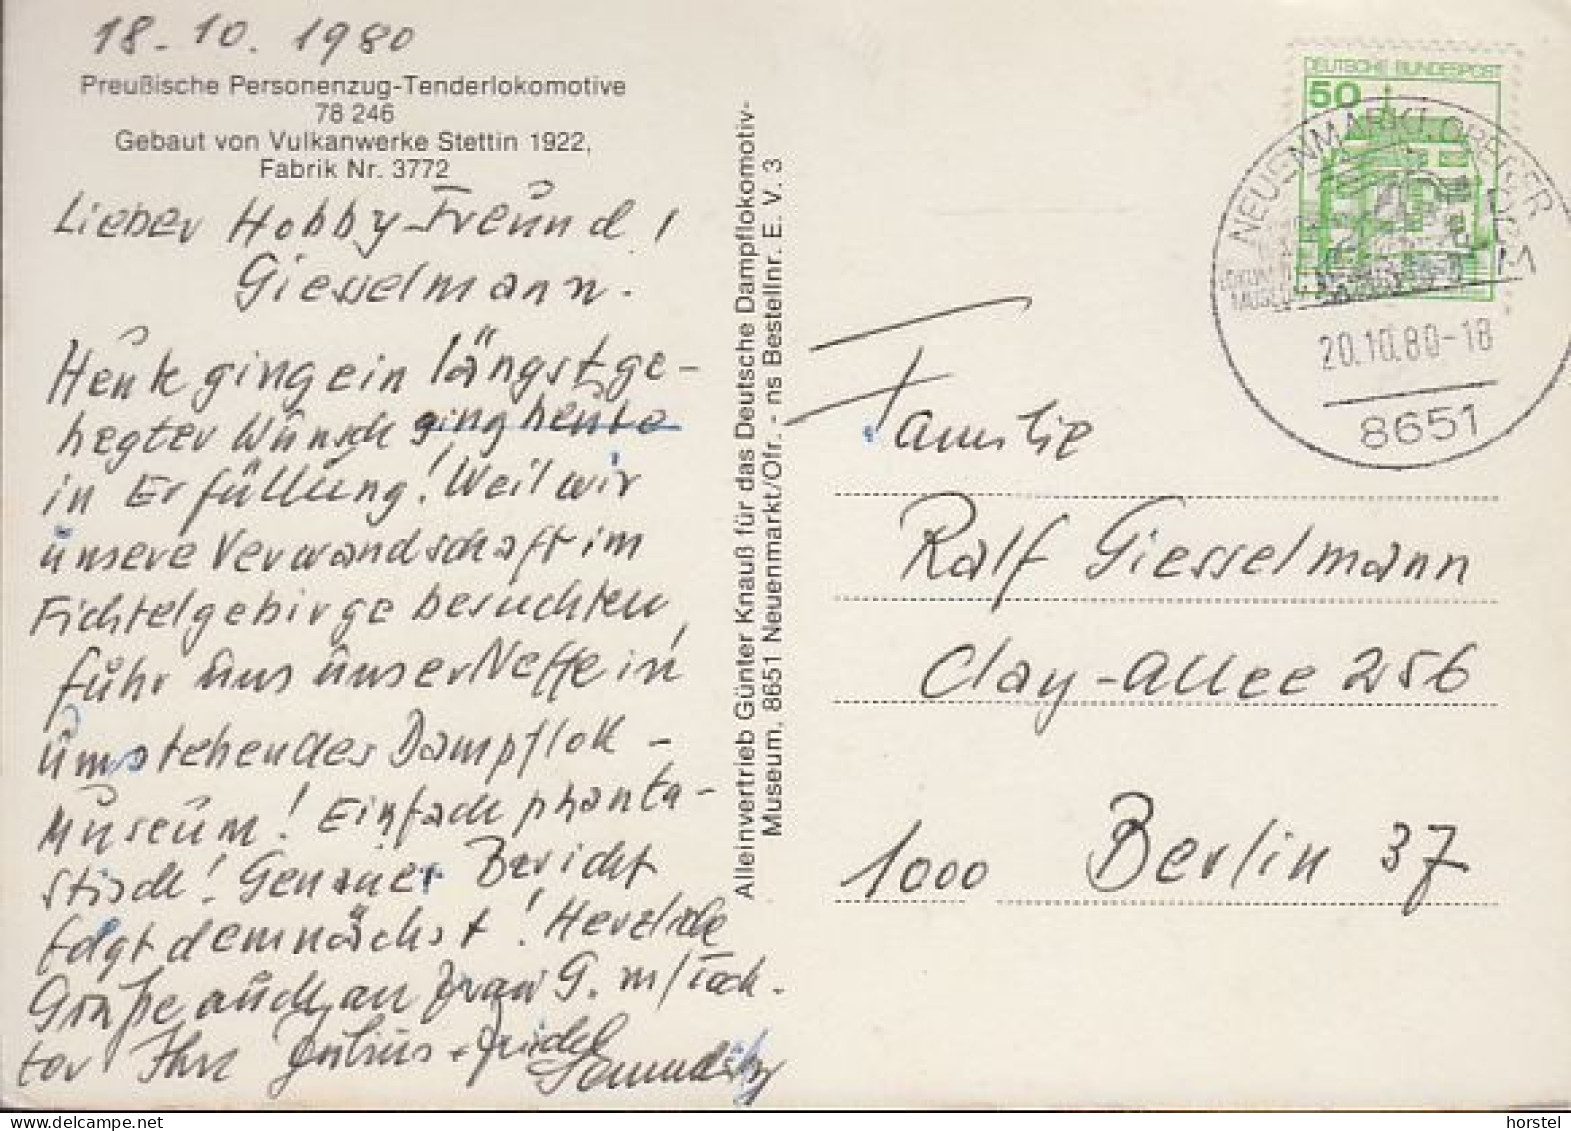 18.10.1980
Preußische Personenzug-Tenderlokomotive
78 246
Gebaut von Vulkanwerke Stettin 1922,
Fabrik Nr. 3772
Lieber Hobby-Freund!
Giesselmann.
Heute ging ein längstge-
hegter Wunsch ging heute
in Erfüllung! Weil wir
unsere Verwandschaft im
Fichtelgebirge besuchten,
fuhr uns unser Neffe in
umstehendes Dampflok-
Museum! Einfach phanta-
stisch! Genauer Bericht
folgt demnächst! Herzliche
Grüße auch an Frau G. m/Toch-
ter Ihr Julius +
Alleinvertrieb Günter Knauß für das Deutsche Dampflokomotiv-
Museum, 8651 Neuenmarkt/Ofr. - ns Bestellnr. E. V. 3
DEUTSCHE BUNDESPOST
50
NEUENMARKT, OBERFR
20.10.80-18
8651
Familie
Ralf Giesselmann
Clay-Allee 256
1000 Berlin 37
horstel